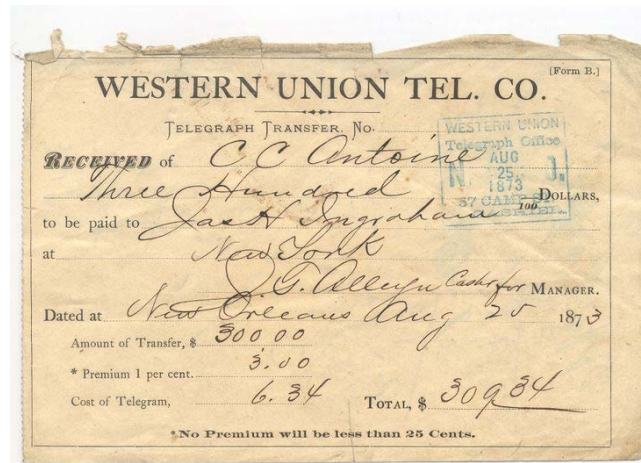 [Form B.]
WESTERN UNION TEL. CO.
TELEGRAPH TRANSFER, No.
WESTERN UNION
Telegraph Office
AUG
25
1873
N. O.
CAMP ST.
RECEIVED of C C Antoine
Three Hundred 100 DOLLARS,
to be paid to Jas H Ingraham
at New York
J. G. Alleyn Cashr for MANAGER.
Dated at New Orleans Aug 25 1873
Amount of Transfer, $ 300.00
* Premium 1 per cent. 3.00
Cost of Telegram, 6.34 TOTAL, $ 309 34
*No Premium will be less than 25 Cents.